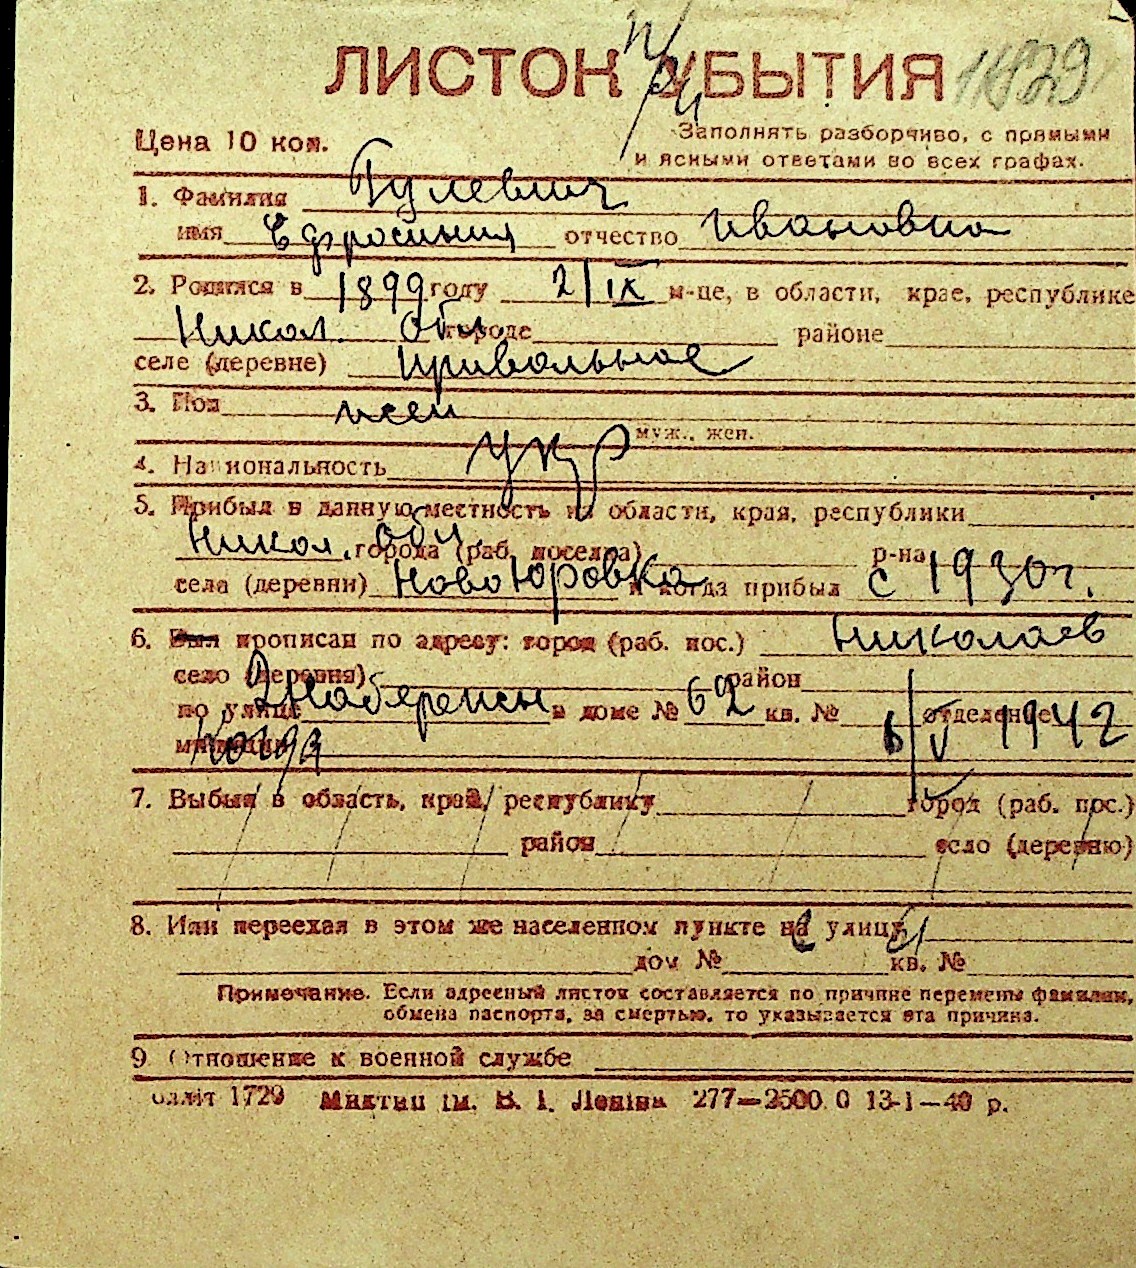 ЛИСТОК УБЫТИЯ
Цена 10 коп.
Заполнять разборчиво, с прямыми
и ясными ответами во всех графах.
1. Фамилия Гулевич
имя Ефросиния отчество Ивановна
2. Родился в 1899 году 2/IX м-це, в области, крае, республике
Никол. обл городе районе
селе (деревне) Привольное
3. Пол жен
муж., жен.
4. Национальность укр
5. Прибыл в данную местность из области, края, республики
Никол. обл. города (раб. поселка) р-на
села (деревни) Ново Юровка и когда прибыл с 1930 г.
6. Был прописан по адресу: город (раб. пос.) Николаев
село (деревня) район
по улице 2 Набережн в доме № 62 кв. № отделение
милиции когда 6/V 1942
7. Выбыл в область, край, республику город (раб. пос.)
район село (деревню)
8. Или переехал в этом же населенном пункте на улицу
дом № кв. №
Примечание. Если адресный листок составляется по причине перемены фамилии,
обмена паспорта, за смертью, то указывается эта причина.
9 Отношение к военной службе
олліт 1729 Миктип ім. В. І. Леніна 277—2500.0 13-1—40 р.